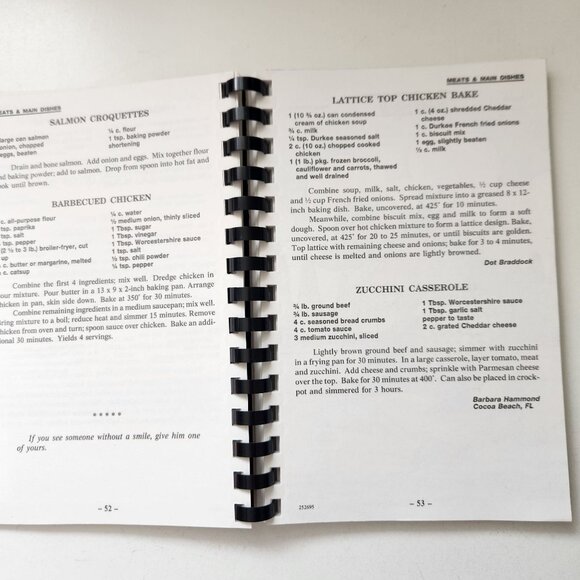 EATS & MAIN DISHES
SALMON CROQUETTES
large can salmon
onion, chopped
eggs, beaten
¼ c. flour
1 tsp. baking powder
shortening
Drain and bone salmon. Add onion and eggs. Mix together flour
nd baking powder; add to salmon. Drop from spoon into hot fat and
ook until brown.
BARBECUED CHICKEN
c. all-purpose flour
tsp. paprika
tsp. salt
tsp. pepper
(2 ½ to 3 lb.) broiler-fryer, cut
up
c. butter or margarine, melted
c. catsup
¼ c. water
½ medium onion, thinly sliced
1 Tbsp. sugar
1 Tbsp. vinegar
1 Tbsp. Worcestershire sauce
1 tsp. salt
½ tsp. chili powder
¼ tsp. pepper
Combine the first 4 ingredients; mix well. Dredge chicken in
our mixture. Pour butter in a 13 x 9 x 2-inch baking pan. Arrange
hicken in pan, skin side down. Bake at 350° for 30 minutes.
Combine remaining ingredients in a medium saucepan; mix well.
ring mixture to a boil; reduce heat and simmer 15 minutes. Remove
hicken from oven and turn; spoon sauce over chicken. Bake an addi-
ional 30 minutes. Yields 4 servings.
*****
If you see someone without a smile, give him one
of yours.
– 52 –
MEATS & MAIN DISHES
LATTICE TOP CHICKEN BAKE
1 (10 ¾ oz.) can condensed
cream of chicken soup
¾ c. milk
¼ tsp. Durkee seasoned salt
2 c. (10 oz.) chopped cooked
chicken
1 (1 lb.) pkg. frozen broccoli,
cauliflower and carrots, thawed
and well drained
1 c. (4 oz.) shredded Cheddar
cheese
1 c. Durkee French fried onions
1 c. biscuit mix
1 egg, slightly beaten
⅓ c. milk
Combine soup, milk, salt, chicken, vegetables, ½ cup cheese
and ½ cup French fried onions. Spread mixture into a greased 8 x 12-
inch baking dish. Bake, uncovered, at 425° for 10 minutes.
Meanwhile, combine biscuit mix, egg and milk to form a soft
dough. Spoon over hot chicken mixture to form a lattice design. Bake,
uncovered, at 425° for 20 to 25 minutes, or until biscuits are golden.
Top lattice with remaining cheese and onions; bake for 3 to 4 minutes,
until cheese is melted and onions are lightly browned.
Dot Braddock
ZUCCHINI CASSEROLE
¾ lb. ground beef
¾ lb. sausage
4 c. seasoned bread crumbs
4 c. tomato sauce
3 medium zucchini, sliced
1 Tbsp. Worcestershire sauce
1 Tbsp. garlic salt
pepper to taste
2 c. grated Cheddar cheese
Lightly brown ground beef and sausage; simmer with zucchini
in a frying pan for 30 minutes. In a large casserole, layer tomato, meat
and zucchini. Add cheese and crumbs; sprinkle with Parmesan cheese
over the top. Bake for 30 minutes at 400°. Can also be placed in crock-
pot and simmered for 3 hours.
Barbara Hammond
Cocoa Beach, FL
252695
– 53 –